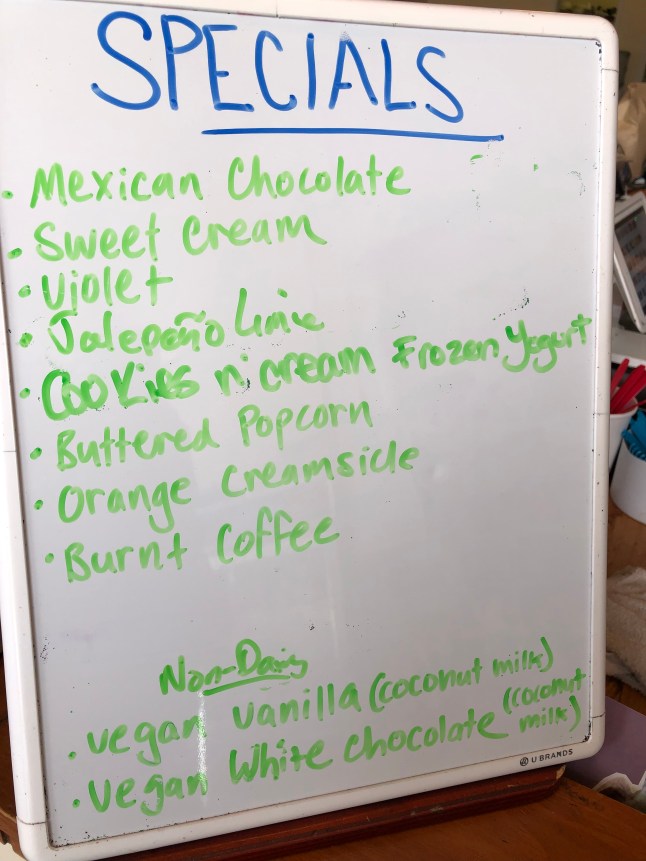 SPECIALS
• Mexican Chocolate
• Sweet Cream
• Violet
• Jalepeño Lime
• Cookies n' cream Frozen Yogurt
• Buttered Popcorn
• Orange Creamsicle
• Burnt Coffee
Non-Dairy
• vegan vanilla (coconut milk)
• vegan White chocolate (coconut milk)
U BRANDS